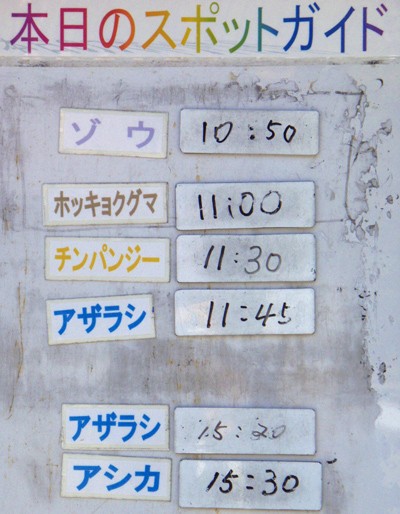 本日のスポットガイド
ゾウ 10:50
ホッキョクグマ 11:00
チンパンジー 11:30
アザラシ 11:45
アザラシ 15:20
アシカ 15:30